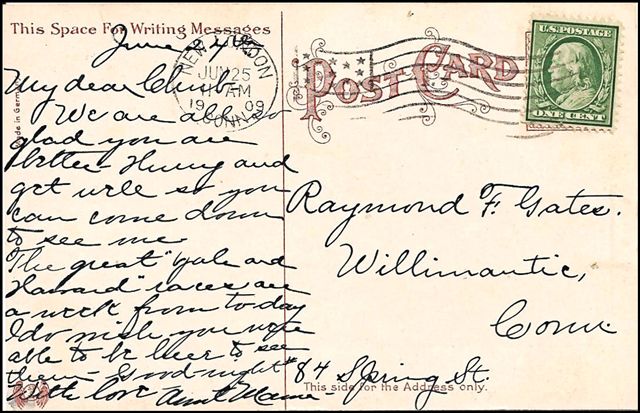 This Space For Writing Messages
June 24th
My dear Chub-
We are all so
glad you are
better. Hurry and
get well so you
can come down
to see me.
The great "Yale and
Harvard" races are
a week from today
I do wish you were
able to be here to see
them - Good-night
With love Aunt Mamie-
Made in Germany
NEW LONDON
JUN 25
AM
1909
CONN.
POST CARD
U.S. POSTAGE
ONE CENT
Raymond F. Gates.
Willimantic,
Conn.
#84 Spring St.
This side for the Address only.